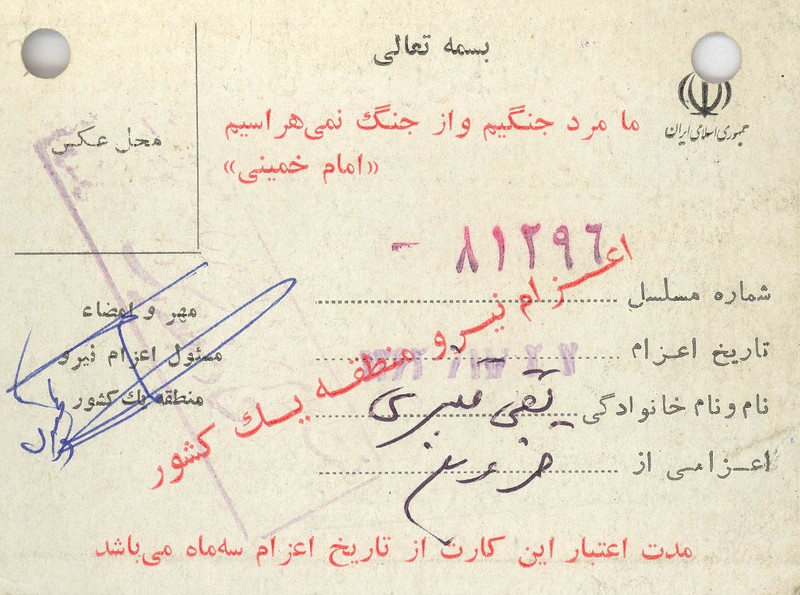 بسمه تعالی
جمهوری اسلامی ایران
ما مرد جنگیم و از جنگ نمی‌هراسیم
«امام خمینی»
محل عکس
شماره مسلسل ۸۱۲۹۶ -
تاریخ اعزام
نام و نام خانوادگی تقی
اعزامی از
مهر و امضاء
مسئول اعزام نیرو
منطقه یک کشور
اعزام نیرو منطقه یک کشور
مدت اعتبار این کارت از تاریخ اعزام سه‌ماه می‌باشد